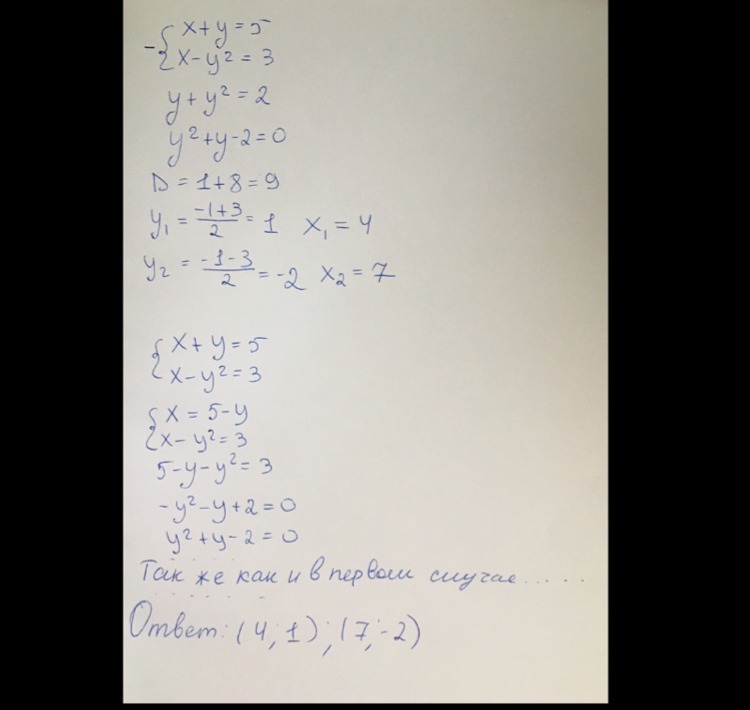 - { x+y=5
x-y²=3
y+y²=2
y²+y-2=0
D=1+8=9
y₁ = (-1+3)/2 = 1 x₁=4
y₂ = (-1-3)/2 = -2 x₂=7
{ x+y=5
x-y²=3
{ x=5-y
x-y²=3
5-y-y²=3
-y²-y+2=0
y²+y-2=0
Так же как и в первом случае.....
Ответ: (4;1);(7;-2)